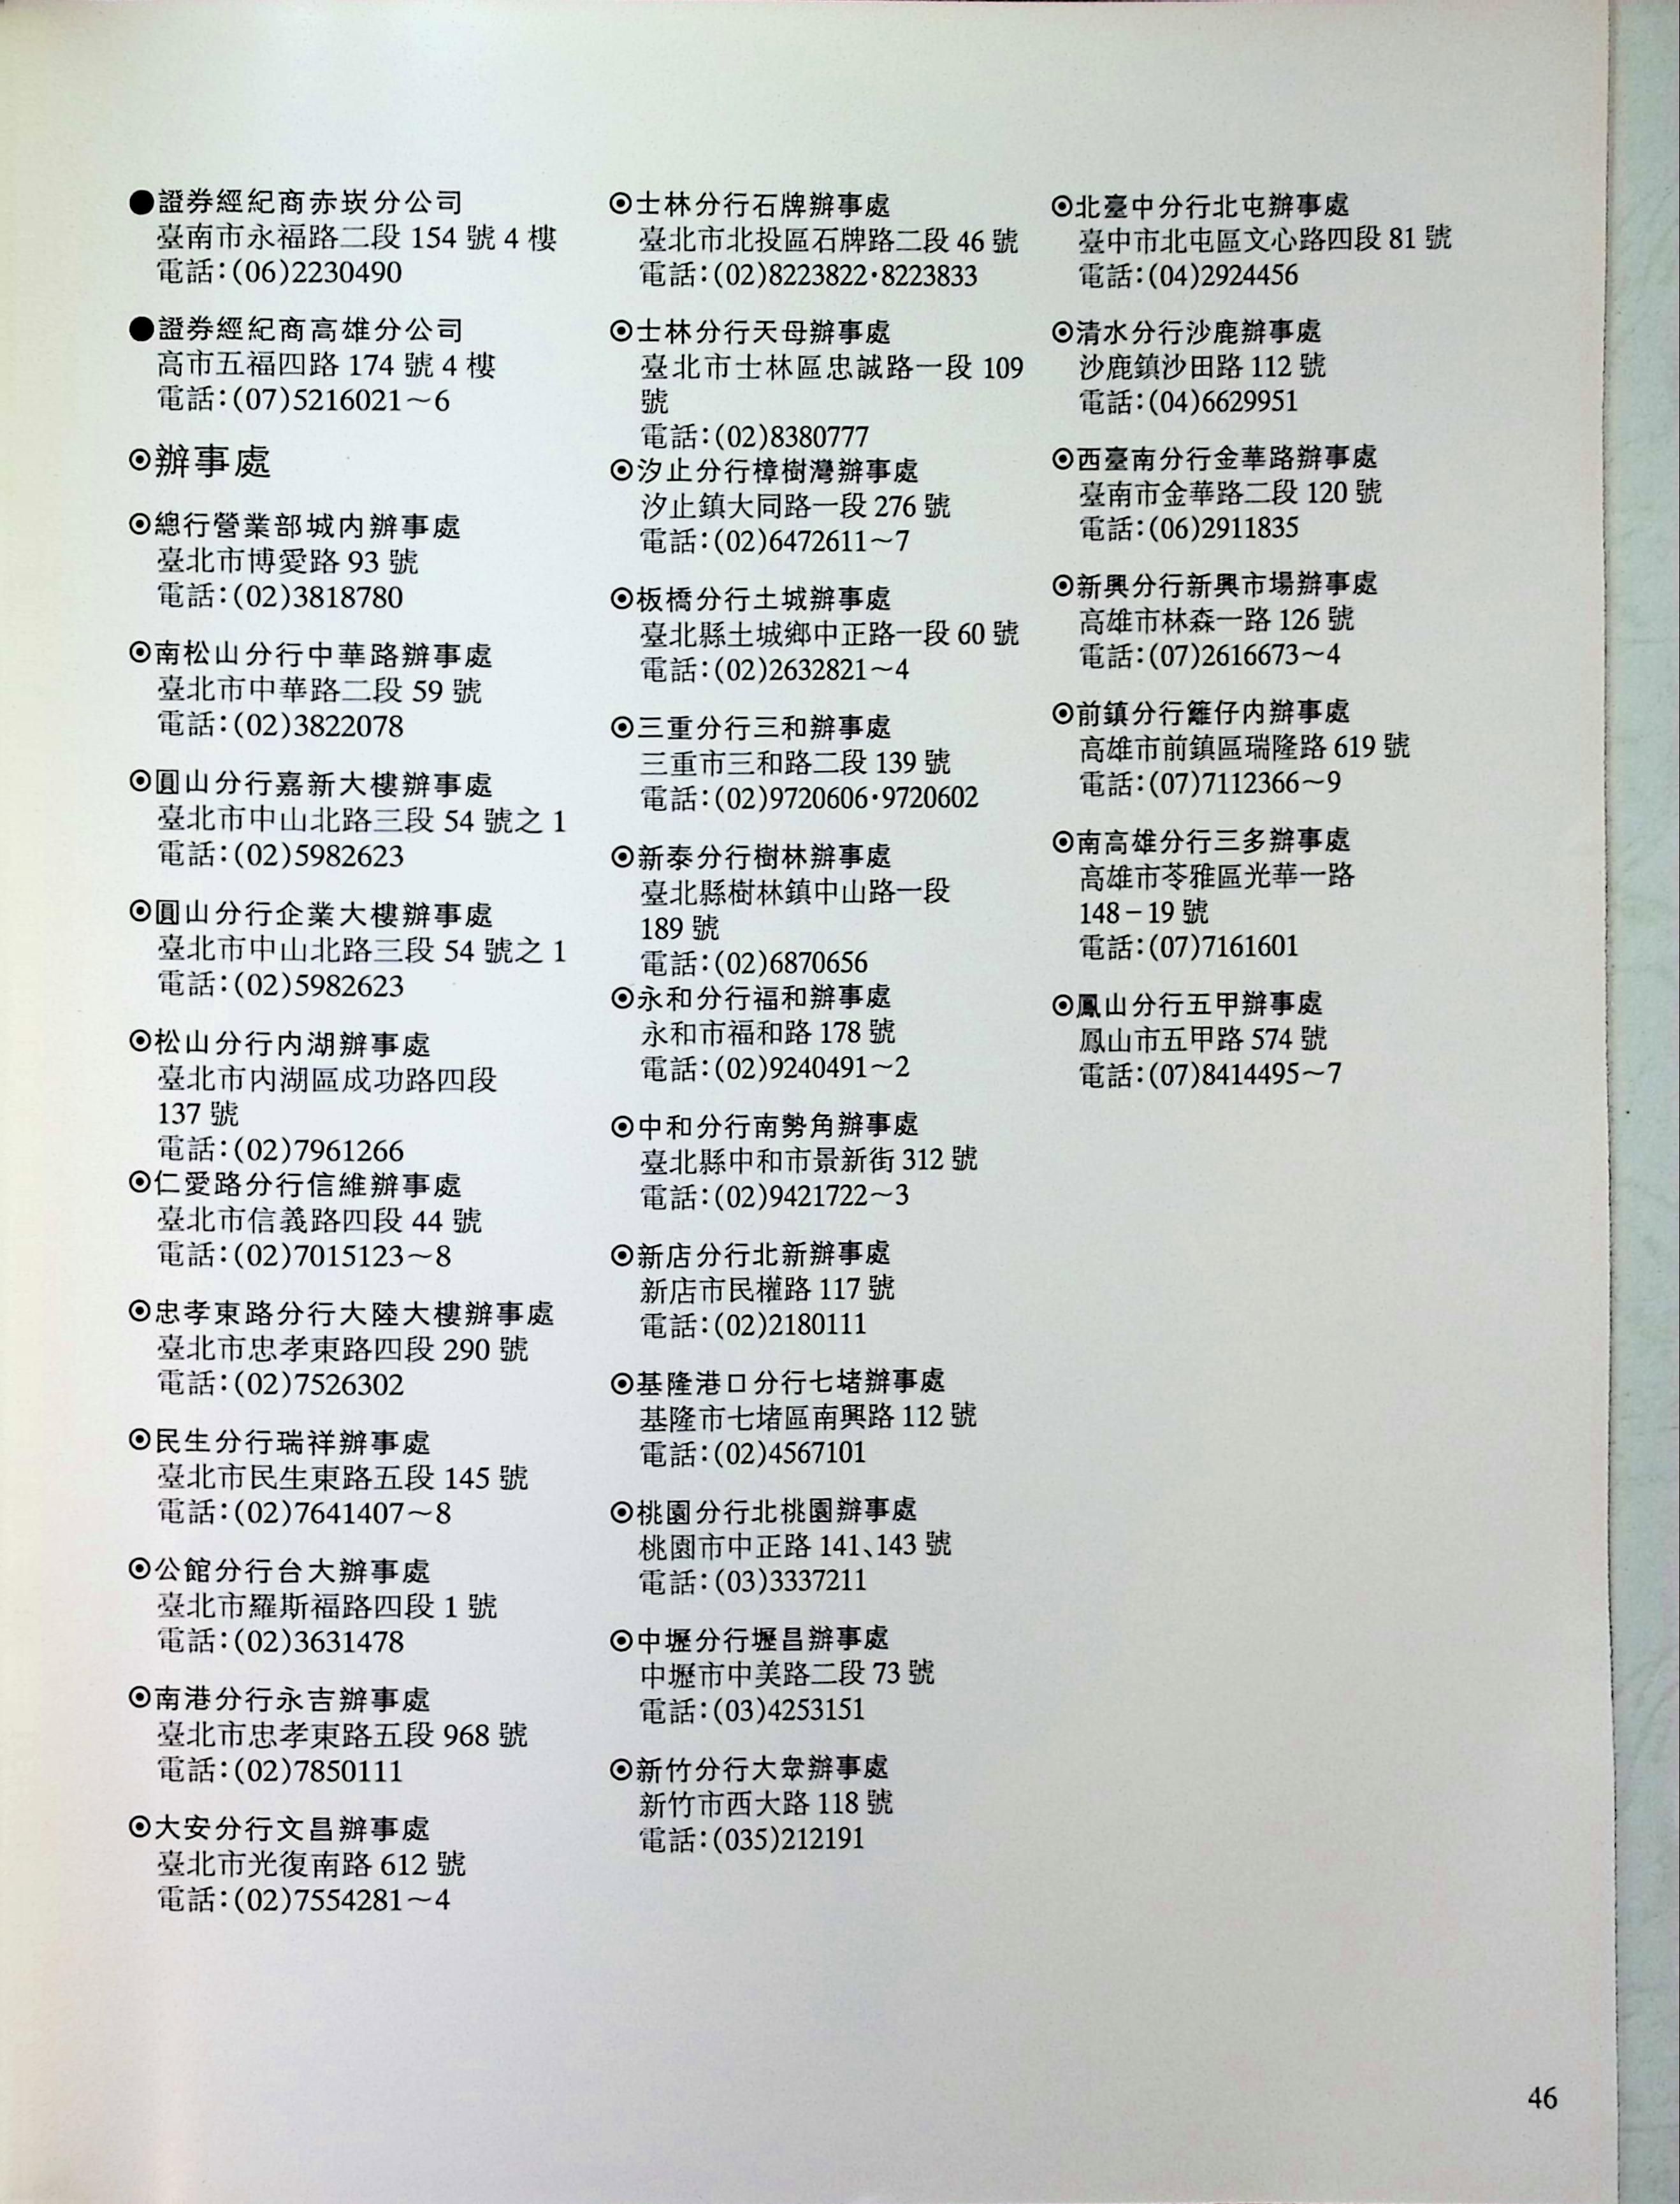 ●證券經紀商赤崁分公司
臺南市永福路二段 154 號 4 樓
電話：(06)2230490
●證券經紀商高雄分公司
高市五福四路 174 號 4 樓
電話：(07)5216021～6
⊙辦事處
⊙總行營業部城内辦事處
臺北市博愛路 93 號
電話：(02)3818780
⊙南松山分行中華路辦事處
臺北市中華路二段 59 號
電話：(02)3822078
⊙圓山分行嘉新大樓辦事處
臺北市中山北路三段 54 號之 1
電話：(02)5982623
⊙圓山分行企業大樓辦事處
臺北市中山北路三段 54 號之 1
電話：(02)5982623
⊙松山分行内湖辦事處
臺北市内湖區成功路四段
137 號
電話：(02)7961266
⊙仁愛路分行信維辦事處
臺北市信義路四段 44 號
電話：(02)7015123～8
⊙忠孝東路分行大陸大樓辦事處
臺北市忠孝東路四段 290 號
電話：(02)7526302
⊙民生分行瑞祥辦事處
臺北市民生東路五段 145 號
電話：(02)7641407～8
⊙公館分行台大辦事處
臺北市羅斯福路四段 1 號
電話：(02)3631478
⊙南港分行永吉辦事處
臺北市忠孝東路五段 968 號
電話：(02)7850111
⊙大安分行文昌辦事處
臺北市光復南路 612 號
電話：(02)7554281～4
⊙士林分行石牌辦事處
臺北市北投區石牌路二段 46 號
電話：(02)8223822·8223833
⊙士林分行天母辦事處
臺北市士林區忠誠路一段 109
號
電話：(02)8380777
⊙汐止分行樟樹灣辦事處
汐止鎮大同路一段 276 號
電話：(02)6472611～7
⊙板橋分行土城辦事處
臺北縣土城鄉中正路一段 60 號
電話：(02)2632821～4
⊙三重分行三和辦事處
三重市三和路二段 139 號
電話：(02)9720606·9720602
⊙新泰分行樹林辦事處
臺北縣樹林鎮中山路一段
189 號
電話：(02)6870656
⊙永和分行福和辦事處
永和市福和路 178 號
電話：(02)9240491～2
⊙中和分行南勢角辦事處
臺北縣中和市景新街 312 號
電話：(02)9421722～3
⊙新店分行北新辦事處
新店市民權路 117 號
電話：(02)2180111
⊙基隆港口分行七堵辦事處
基隆市七堵區南興路 112 號
電話：(02)4567101
⊙桃園分行北桃園辦事處
桃園市中正路 141、143 號
電話：(03)3337211
⊙中壢分行壢昌辦事處
中壢市中美路二段 73 號
電話：(03)4253151
⊙新竹分行大眾辦事處
新竹市西大路 118 號
電話：(035)212191
⊙北臺中分行北屯辦事處
臺中市北屯區文心路四段 81 號
電話：(04)2924456
⊙清水分行沙鹿辦事處
沙鹿鎮沙田路 112 號
電話：(04)6629951
⊙西臺南分行金華路辦事處
臺南市金華路二段 120 號
電話：(06)2911835
⊙新興分行新興市場辦事處
高雄市林森一路 126 號
電話：(07)2616673～4
⊙前鎮分行籬仔内辦事處
高雄市前鎮區瑞隆路 619 號
電話：(07)7112366～9
⊙南高雄分行三多辦事處
高雄市苓雅區光華一路
148－19 號
電話：(07)7161601
⊙鳳山分行五甲辦事處
鳳山市五甲路 574 號
電話：(07)8414495～7
46